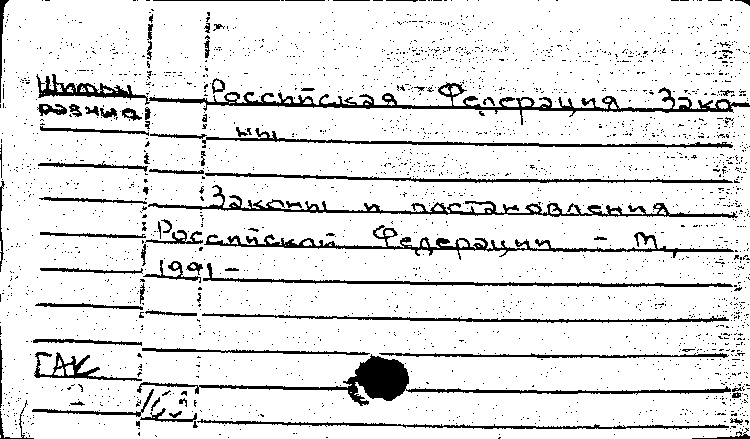 Шифры
разные
Российская Федерация Зако-
ны
Законы и постановления
Российской Федерации – М.,
1991 –
ГАК